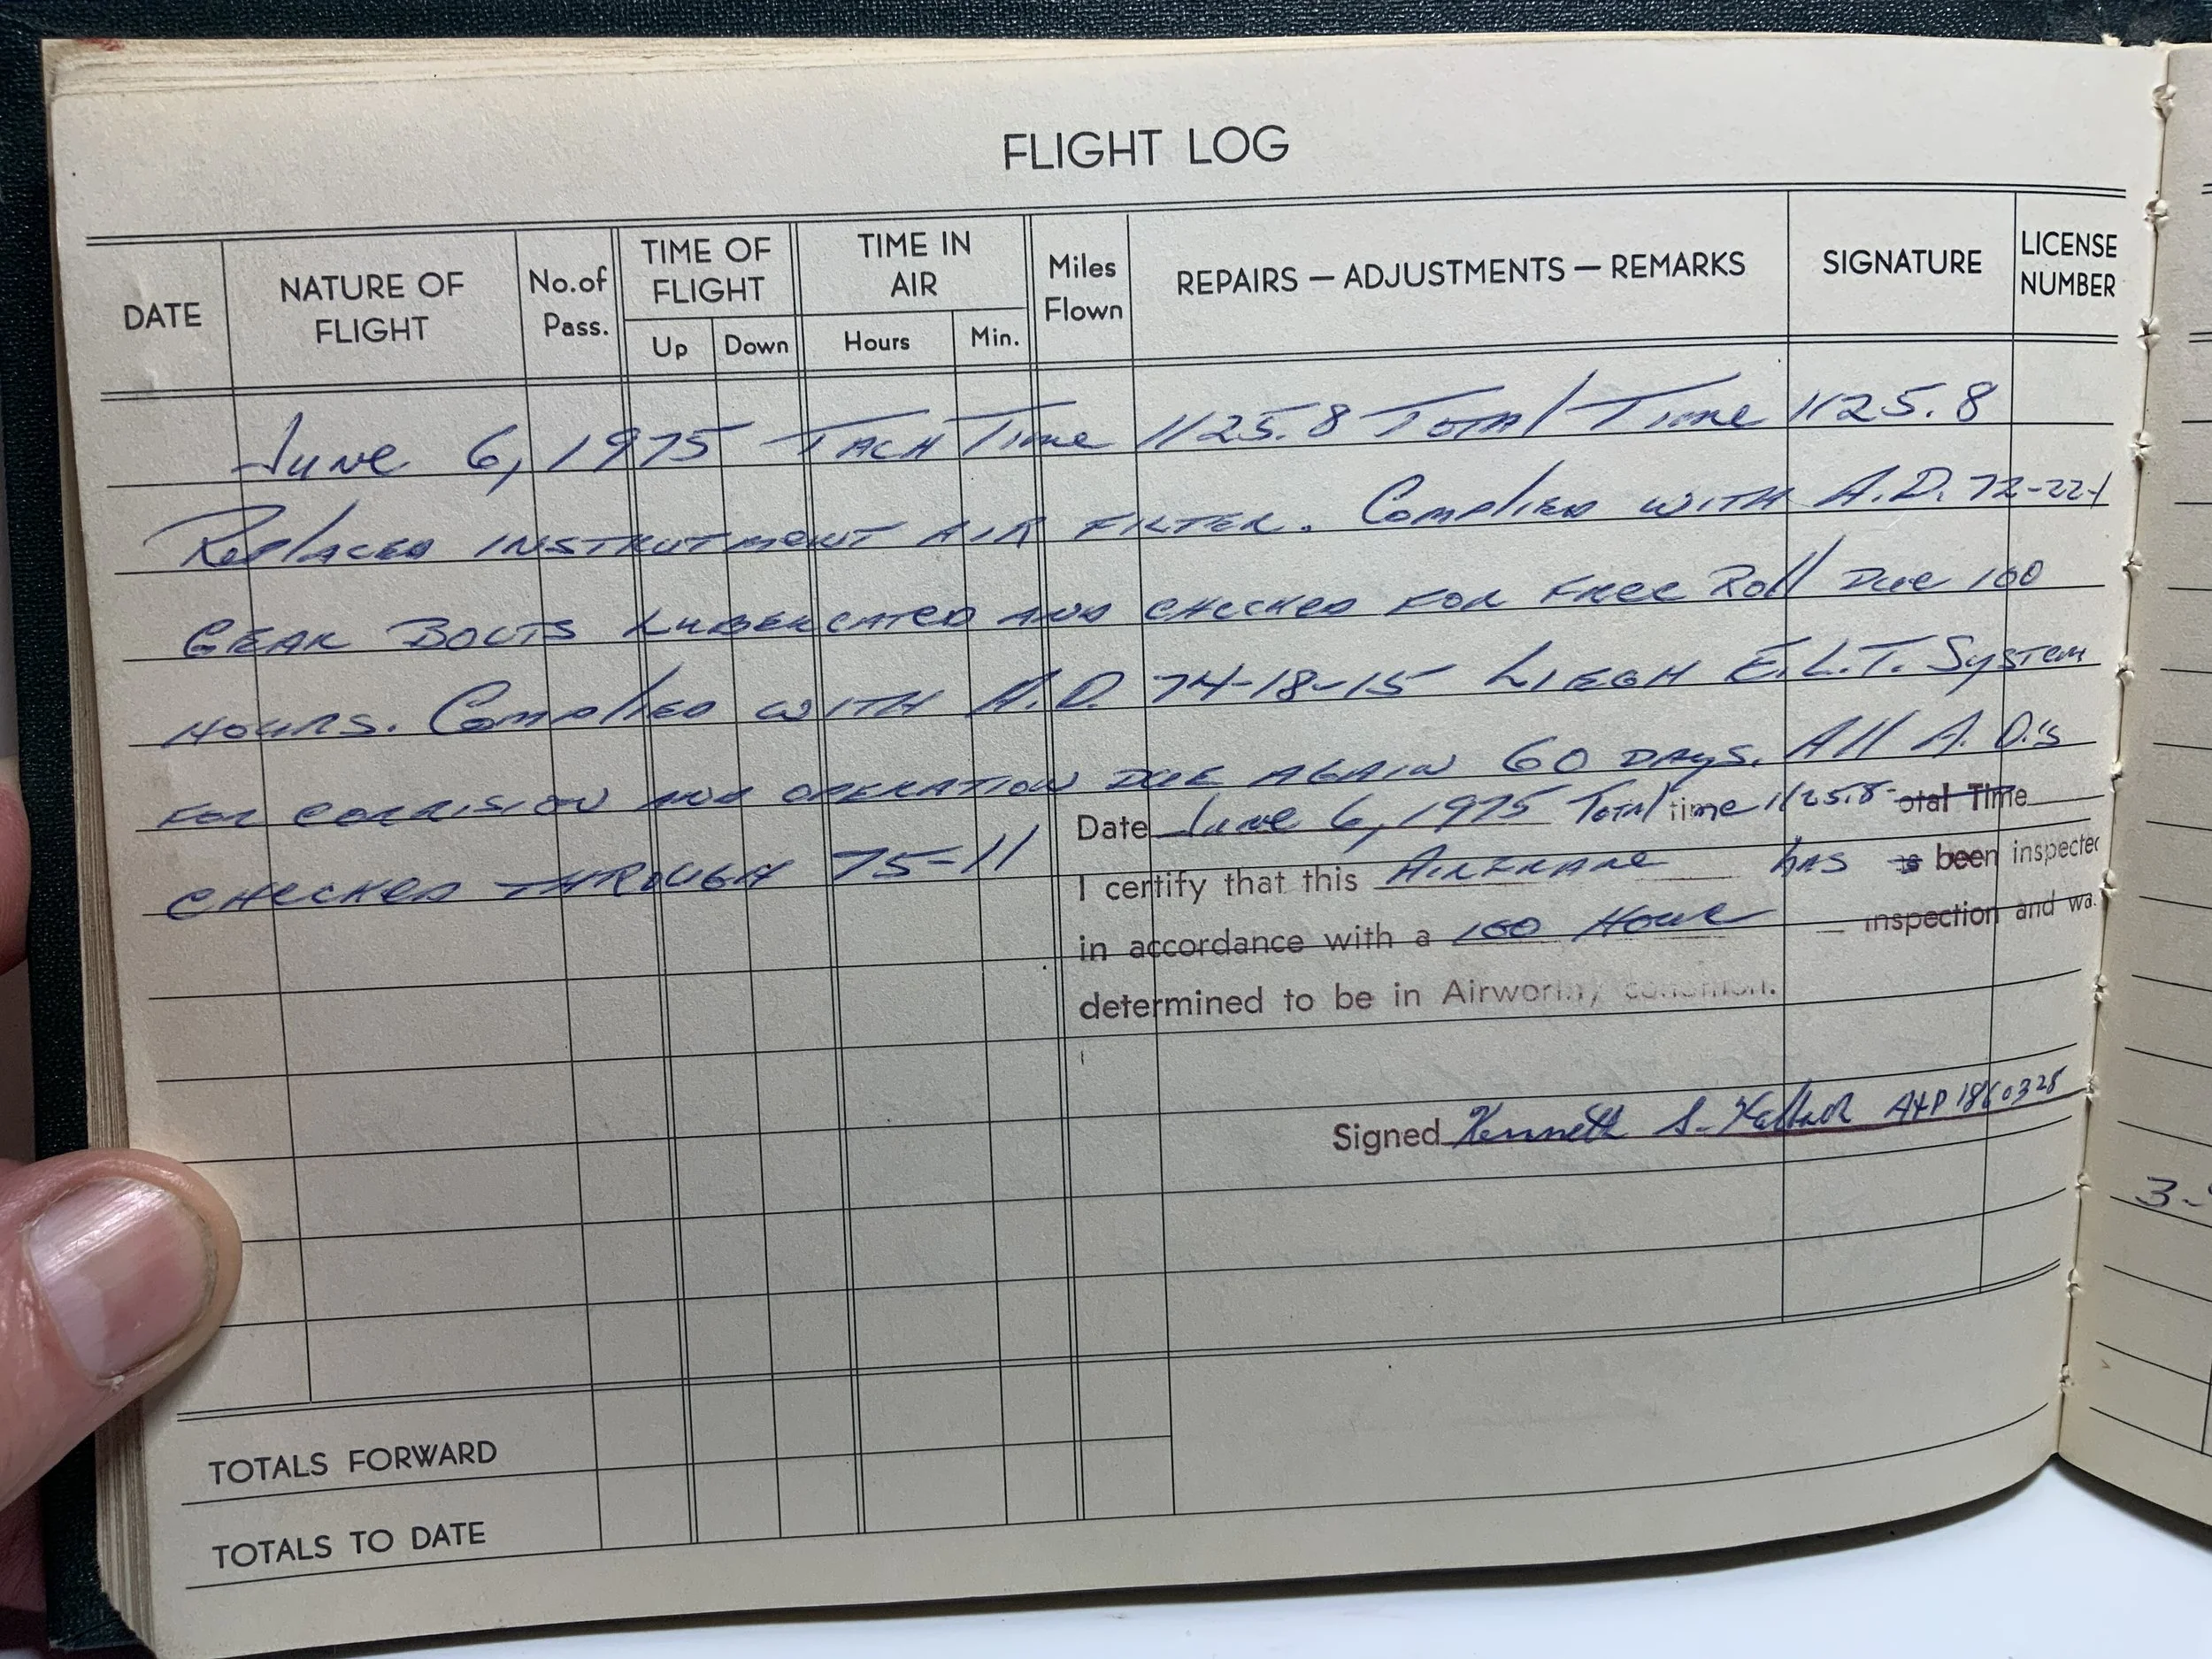 FLIGHT LOG
DATE NATURE OF FLIGHT No. of Pass. TIME OF FLIGHT Up Down TIME IN AIR Hours Min. Miles Flown REPAIRS — ADJUSTMENTS — REMARKS SIGNATURE LICENSE NUMBER
June 6, 1975 Tach Time 1125.8 Total Time 1125.8
Replaced INSTRUTMENT AIR FILTER. Complied WITH A.D. 72-22-1
GEAR BOLTS LUBERCATED AND CHECKED FOR FREE Roll Due 100
HOURS. Complied WITH A.D. 74-18-15 LIEGH E.L.T. System
FOR CORRISION AND OPERATION DUE AGAIN 60 DAYS. All A.D.'s
CHECKED THROUGH 75-11
Date June 6, 1975 Total time 1125.8 otal Time
I certify that this AIRFRAME has is been inspected
in accordance with a 100 Hour inspection and wa
determined to be in Airworthy condition.
Signed Kenneth S. A&P 1860328
3-
TOTALS FORWARD
TOTALS TO DATE